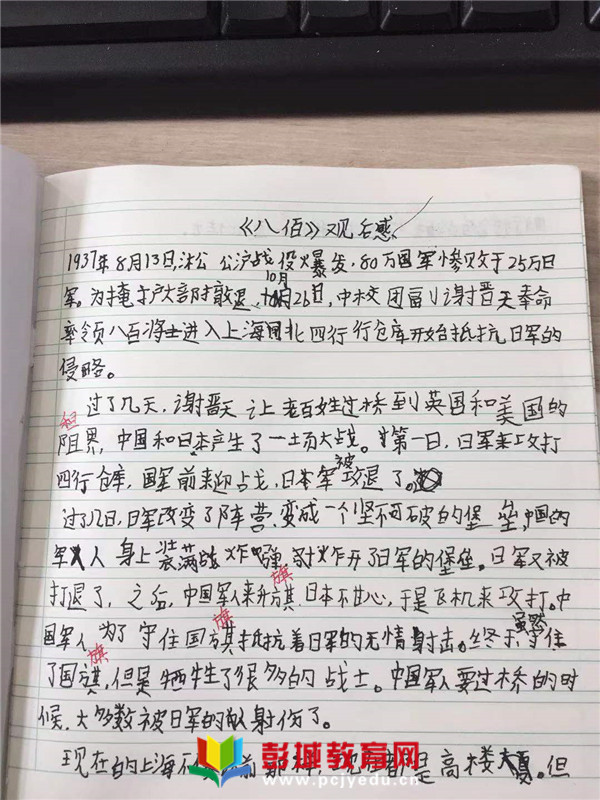 《八佰》观后感
1937年8月13日,淞公沪战役火爆发,80万国军惨败于25万日
军。为掩护大部队撤退,10月26日,中校团副谢晋元奉命
率领八百将士进入上海闸北四行行仓库开始抵抗日军的
侵略。
过了几天,谢晋元让老百姓过桥到英国和美国的
租
阻界,中国和日本产生了一场大战。第一日,日军来攻打
四行仓库,国军前来迎战,日本军被攻退了。
过了几日,日军改变了阵营,变成一个坚不可破的堡垒,中国的
军人身上装满战炸弹对炸开了日军的堡垒。日军又被
旗
打退了,之后,中国军人来升旗,日本不甘心,于是飞机来攻打。中
旗
国军人为了守住国旗抵抗着日军的无情射击。虽然终于守住
旗
了国旗,但是牺牲了很多的战士。中国军人要过桥的时
候,大多数被日军的敌射伤了。
现在的上海不是高楼大厦。但
彭城教育网
www.pcjyedu.cn